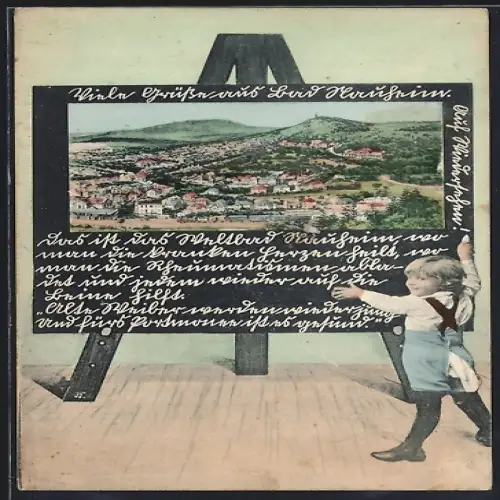 Viele Grüße aus Bad Nauheim.
Auf Wiedersehen!
Das ist das Weltbad Nauheim, wo
man die kranken Herzen heilt, wo
man die Rheumatismen abla-
det und jedem wieder auf die
Beine hilft.
„Alte Weiber werden wieder jung
und fürs Portmonee ist es gesund."